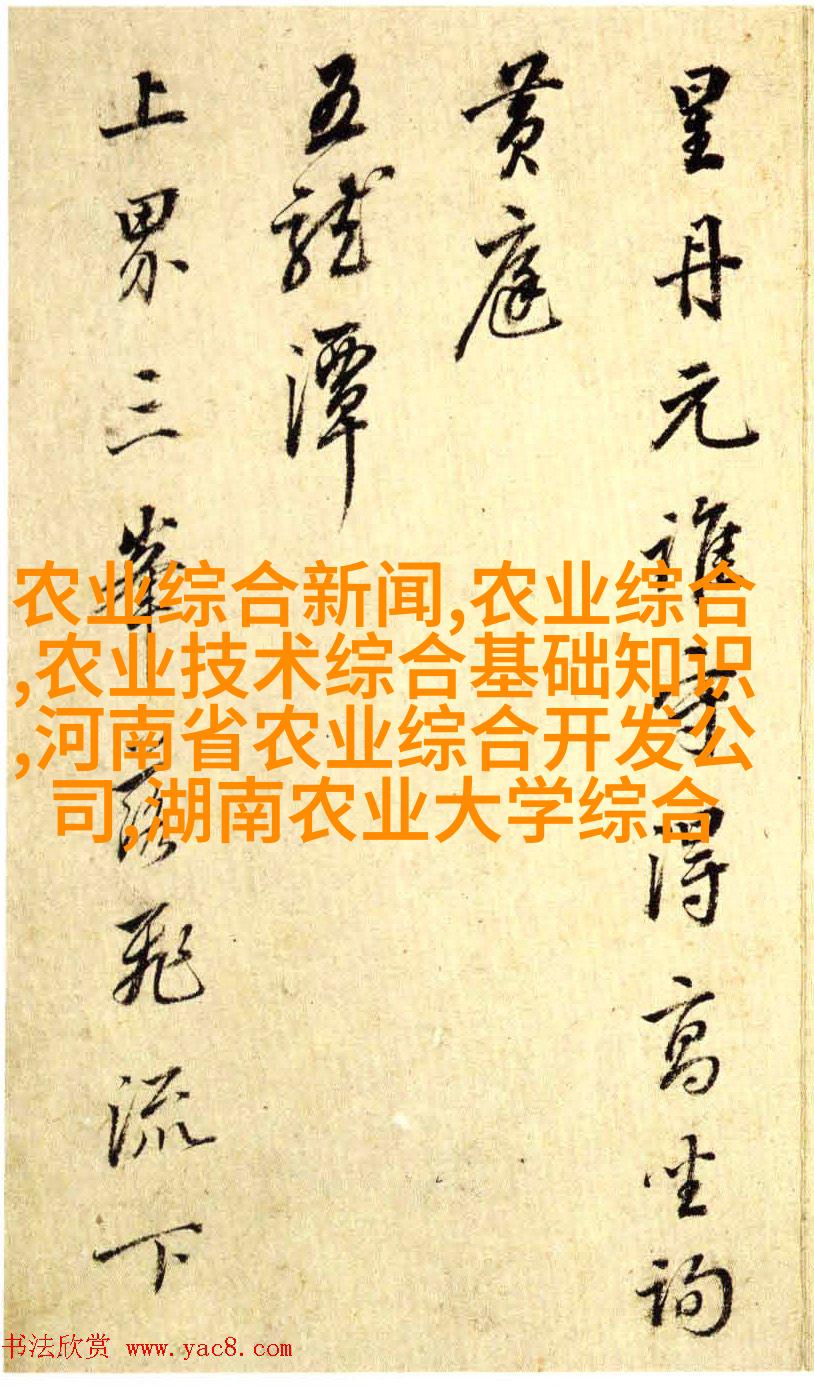 星丹元谁守得高坐询
黄庭
五龙潭
上界三峰落飛流下
农业综合新闻,农业综合
,农业技术综合基础知识
,河南省农业综合开发公
司,湖南农业大学综合
书法欣赏 www.yac8.com